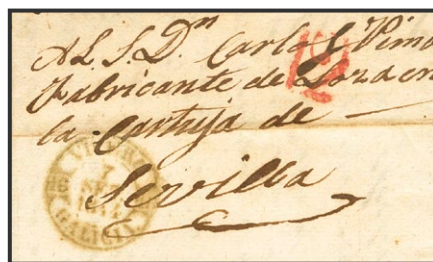 Al S. Dn. Carlos Pim
Fabricante de Loza en
la Cartuja de
Sevilla
GALICIA